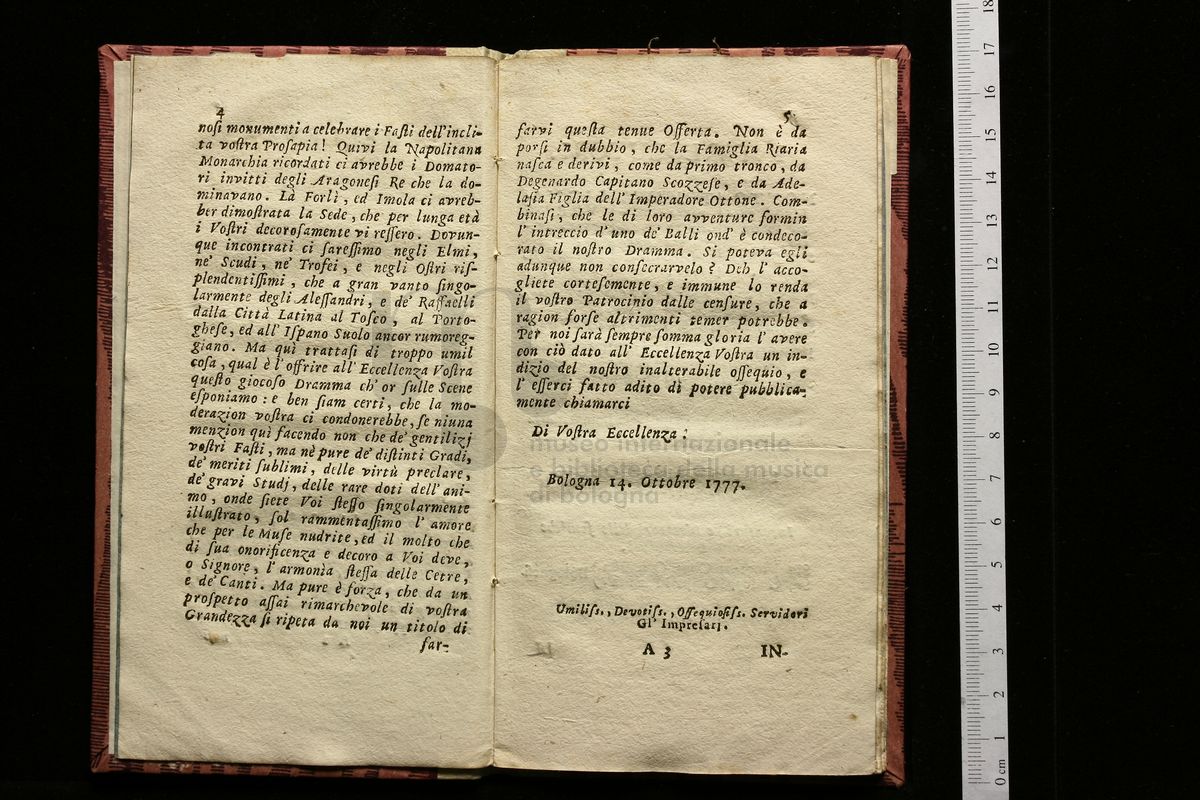 4
nosi monumenti a celebrare i Fasti dell'incli-
ta vostra Prosapia! Quivi la Napolitana
Monarchia ricordati ci avrebbe i Domato-
ri invitti degli Aragonesi Re che la do-
minavano. Là Forlì, ed Imola ci avreb-
ber dimostrata la Sede, che per lunga età
i Vostri decorosamente vi ressero. Dovun-
que incontrati ci saressimo negli Elmi,
ne' Scudi, ne' Trofei, e negli Ostri ris-
plendentissimi, che a gran vanto singo-
larmente degli Alessandri, e de' Raffaelli
dalla Città Latina al Tosco, al Porto-
ghese, ed all' Ispano Suolo ancor rumoreg-
giano. Ma quì trattasi di troppo umil
cosa, qual è l'offrire all' Eccellenza Vostra
questo giocoso Dramma ch' or sulle Scene
esponiamo: e ben siam certi, che la mo-
derazion vostra ci condonerebbe, se niuna
menzion quì facendo non che de' gentilizj
vostri Fasti, ma nè pure de' distinti Gradi,
de' meriti sublimi, delle virtù preclare,
de' gravi Studj, delle rare doti dell' ani-
mo, onde siete Voi stesso singolarmente
illustrato, sol rammentassimo l' amore
che per le Muse nudrite, ed il molto che
di sua onorificenza e decoro a Voi deve,
o Signore, l' armonìa stessa delle Cetre,
e de' Canti. Ma pure è forza, che da un
prospetto assai rimarchevole di vostra
Grandezza si ripeta da noi un titolo di
far-
5
farvi questa tenue Offerta. Non è da
porsi in dubbio, che la Famiglia Riaria
nasca e derivi, come da primo tronco, da
Degenardo Capitano Scozzese, e da Ade-
lasia Figlia dell' Imperadore Ottone. Com-
binasi, che le di loro avventure formin
l' intreccio d' uno de' Balli ond' è condeco-
rato il nostro Dramma. Si poteva egli
adunque non consecrarvelo? Deh l' acco-
gliete cortesemente, e immune lo renda
il vostro Patrocinio dalle censure, che a
ragion forse altrimenti temer potrebbe.
Per noi sarà sempre somma gloria l' avere
con ciò dato all' Eccellenza Vostra un in-
dizio del nostro inalterabile ossequio, e
l' esserci fatto adito di potere pubblica-
mente chiamarci
Di Vostra Eccellenza;
museo internazionale
e biblioteca della musica
di bologna
Bologna 14. Ottobre 1777.
Umiliss., Devotiss., Ossequiosiss. Servidori
Gl' Impresarj.
A 3 IN-
18
17
16
15
14
13
12
11
10
9
8
7
6
5
4
3
2
1
0 cm